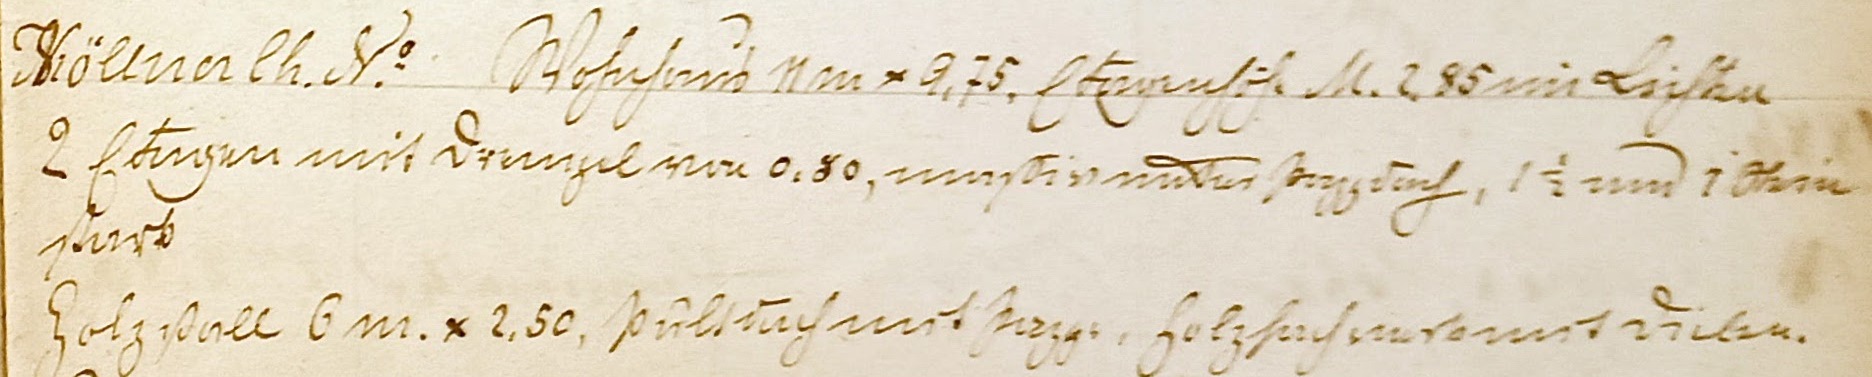 Möllner Ch. No. Wohnhaus 11 m × 9,75, Etagenhöh. M. 2,85 im Lichten
2 Etagen mit Drempel von 0.80, massiv unter Pappdach, 1 ½ und 1 Stein
stark
Holzstall 6 m. × 2,50, Pultdach mit Pappe, Holzfachwerk mit Dielen.